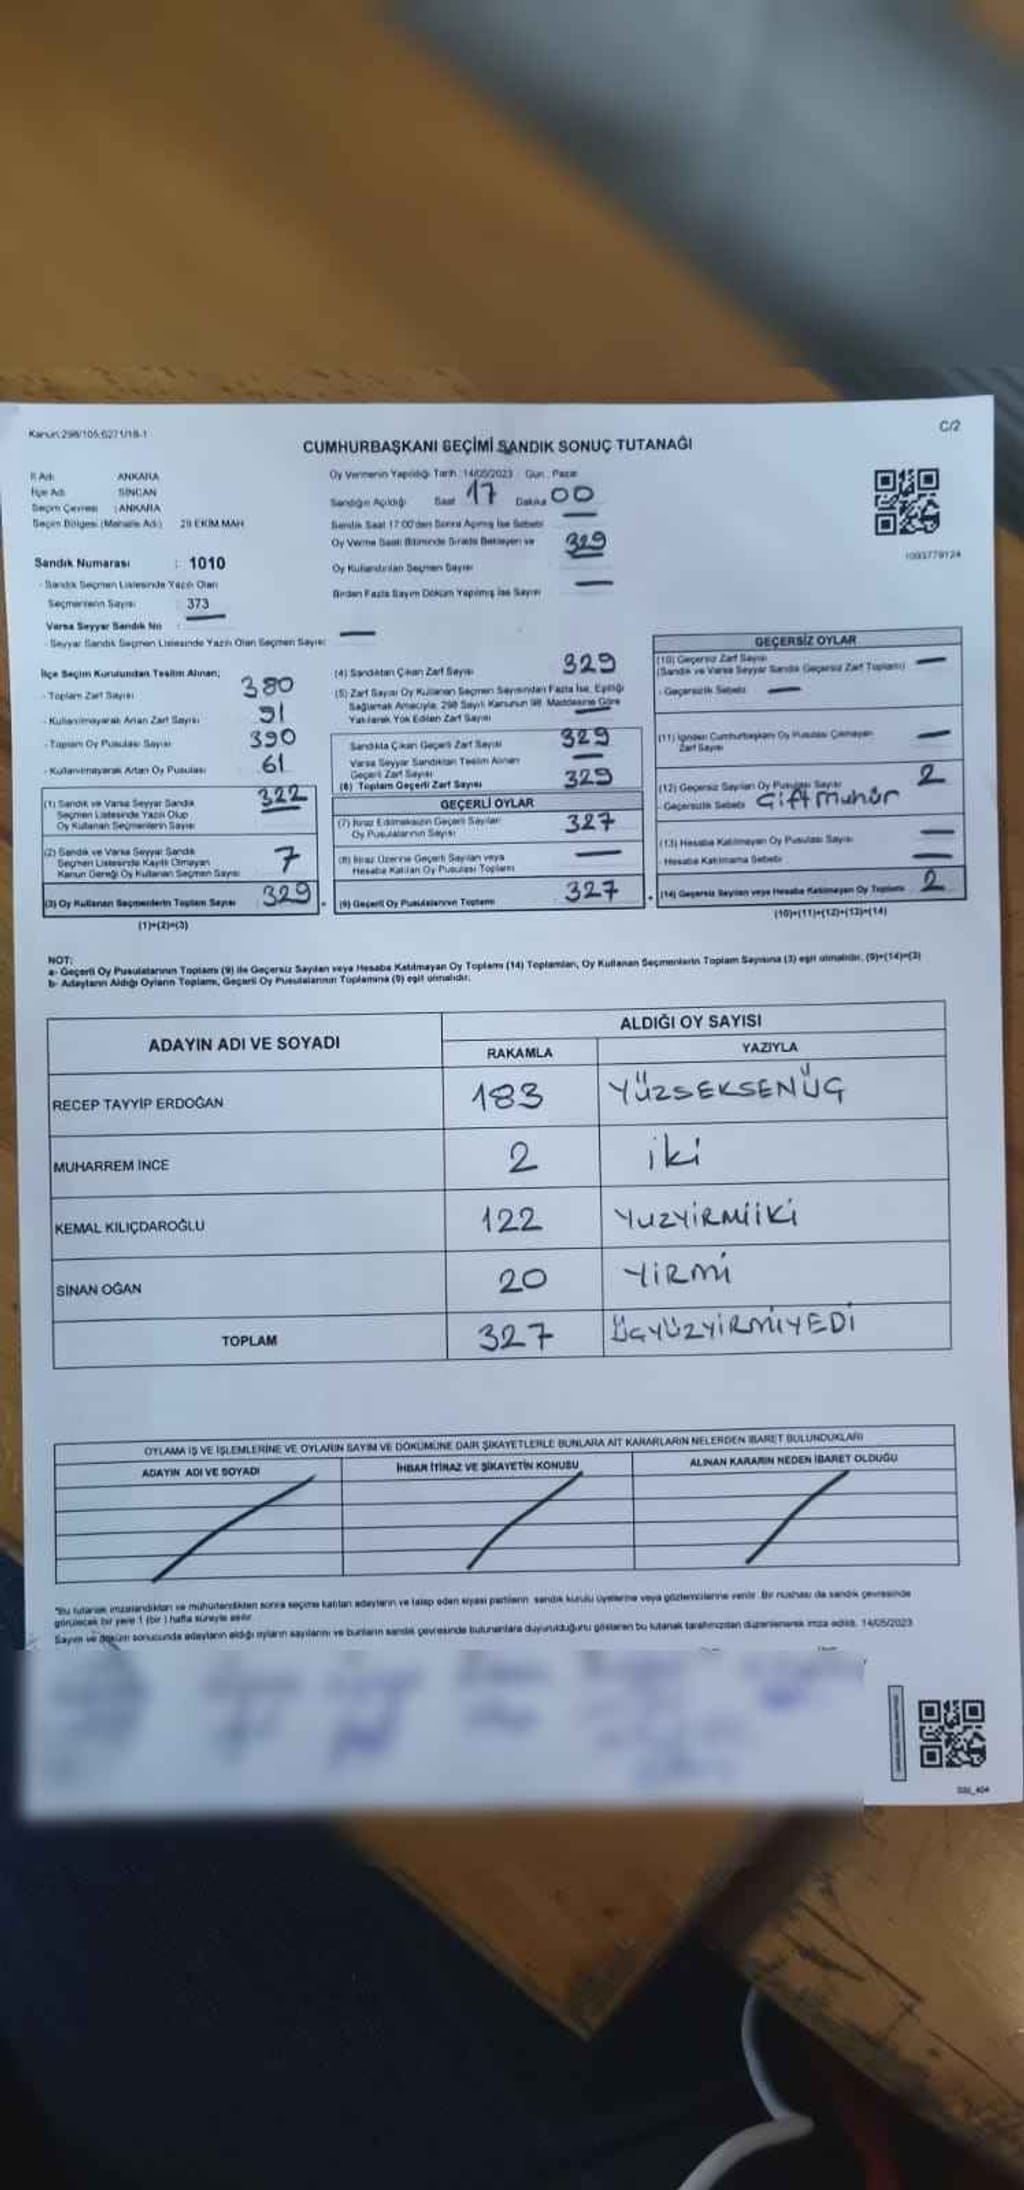 Kanun:298/105,6271/18-1
C/2
CUMHURBAŞKANI SEÇİMİ SANDIK SONUÇ TUTANAĞI
İl Adı ANKARA
İlçe Adı SİNCAN
Seçim Çevresi : ANKARA
Seçim Bölgesi (Mahalle Adı) 29 EKİM MAH
Oy Vermenin Yapıldığı Tarih :14/05/2023 Gün : Pazar
Sandığın Açıldığı Saat 17 Dakika 00
Sandık Saat 17:00'den Sonra Açılmış İse Sebebi —
Oy Verme Saati Bitiminde Sırada Bekleyen ve
329
Oy Kullandırılan Seçmen Sayısı
Birden Fazla Sayım Döküm Yapılmış İse Sayısı —
1093779124
Sandık Numarası : 1010
- Sandık Seçmen Listesinde Yazılı Olan
Seçmenlerin Sayısı : 373
Varsa Seyyar Sandık No : —
- Seyyar Sandık Seçmen Listesinde Yazılı Olan Seçmen Sayısı: —
İlçe Seçim Kurulundan Teslim Alınan;
- Toplam Zarf Sayısı 380
- Kullanılmayarak Artan Zarf Sayısı 91
- Toplam Oy Pusulası Sayısı 390
- Kullanılmayarak Artan Oy Pusulası 61
(1) Sandık ve Varsa Seyyar Sandık
Seçmen Listesinde Yazılı Olup
Oy Kullanan Seçmenlerin Sayısı
322
(2) Sandık ve Varsa Seyyar Sandık
Seçmen Listesinde Kayıtlı Olmayan
Kanun Gereği Oy Kullanan Seçmen Sayısı
7
(3) Oy Kullanan Seçmenlerin Toplam Sayısı 329
(1)+(2)=(3)
(4) Sandıktan Çıkan Zarf Sayısı 329
(5) Zarf Sayısı Oy Kullanan Seçmen Sayısından Fazla İse, Eşitliği
Sağlamak Amacıyla, 298 Sayılı Kanunun 98. Maddesine Göre
Yakılarak Yok Edilen Zarf Sayısı —
Sandıkta Çıkan Geçerli Zarf Sayısı 329
Varsa Seyyar Sandıktan Teslim Alınan
Geçerli Zarf Sayısı —
(6) Toplam Geçerli Zarf Sayısı 329
GEÇERLİ OYLAR
(7) İtiraz Edilmeksizin Geçerli Sayılan
Oy Pusulalarının Sayısı
327
(8) İtiraz Üzerine Geçerli Sayılan veya
Hesaba Katılan Oy Pusulası Toplamı —
(9) Geçerli Oy Pusulalarının Toplamı 327
GEÇERSİZ OYLAR
(10) Geçersiz Zarf Sayısı —
(Sandık ve Varsa Seyyar Sandık Geçersiz Zarf Toplamı)
- Geçersizlik Sebebi —
(11) İçinden Cumhurbaşkanı Oy Pusulası Çıkmayan
Zarf Sayısı —
(12) Geçersiz Sayılan Oy Pusulası Sayısı 2
- Geçersizlik Sebebi Çift Mühür
(13) Hesaba Katılmayan Oy Pusulası Sayısı —
- Hesaba Katılmama Sebebi —
(14) Geçersiz Sayılan veya Hesaba Katılmayan Oy Toplamı 2
(10)+(11)+(12)+(13)=(14)
NOT:
a- Geçerli Oy Pusulalarının Toplamı (9) ile Geçersiz Sayılan veya Hesaba Katılmayan Oy Toplamı (14) Toplamları, Oy Kullanan Seçmenlerin Toplam Sayısına (3) eşit olmalıdır. (9)+(14)=(3)
b- Adayların Aldığı Oyların Toplamı, Geçerli Oy Pusulalarının Toplamına (9) eşit olmalıdır.
ADAYIN ADI VE SOYADI
ALDIĞI OY SAYISI
RAKAMLA YAZIYLA
RECEP TAYYİP ERDOĞAN 183 YÜZSEKSENÜÇ
MUHARREM İNCE 2 iki
KEMAL KILIÇDAROĞLU 122 YUZYİRMİİKİ
SİNAN OĞAN 20 YİRMİ
TOPLAM 327 ÜÇYÜZYİRMİYEDİ
OYLAMA İŞ VE İŞLEMLERİNE VE OYLARIN SAYIM VE DÖKÜMÜNE DAİR ŞİKAYETLERLE BUNLARA AİT KARARLARIN NELERDEN İBARET BULUNDUKLARI
ADAYIN ADI VE SOYADI İHBAR İTİRAZ VE ŞİKAYETİN KONUSU ALINAN KARARIN NEDEN İBARET OLDUĞU
*Bu tutanak imzalandıktan ve mühürlendikten sonra seçime katılan adayların ve talep eden siyasi partilerin sandık kurulu üyelerine veya gözlemcilerine verilir. Bir nüshası da sandık çevresinde
görülecek bir yere 1 (bir) hafta süreyle asılır.
Sayım ve döküm sonucunda adayların aldığı oyların sayılarını ve bunların sandık çevresinde bulunanlara duyurulduğunu gösteren bu tutanak tarafımızdan düzenlenerek imza edildi. 14/05/2023